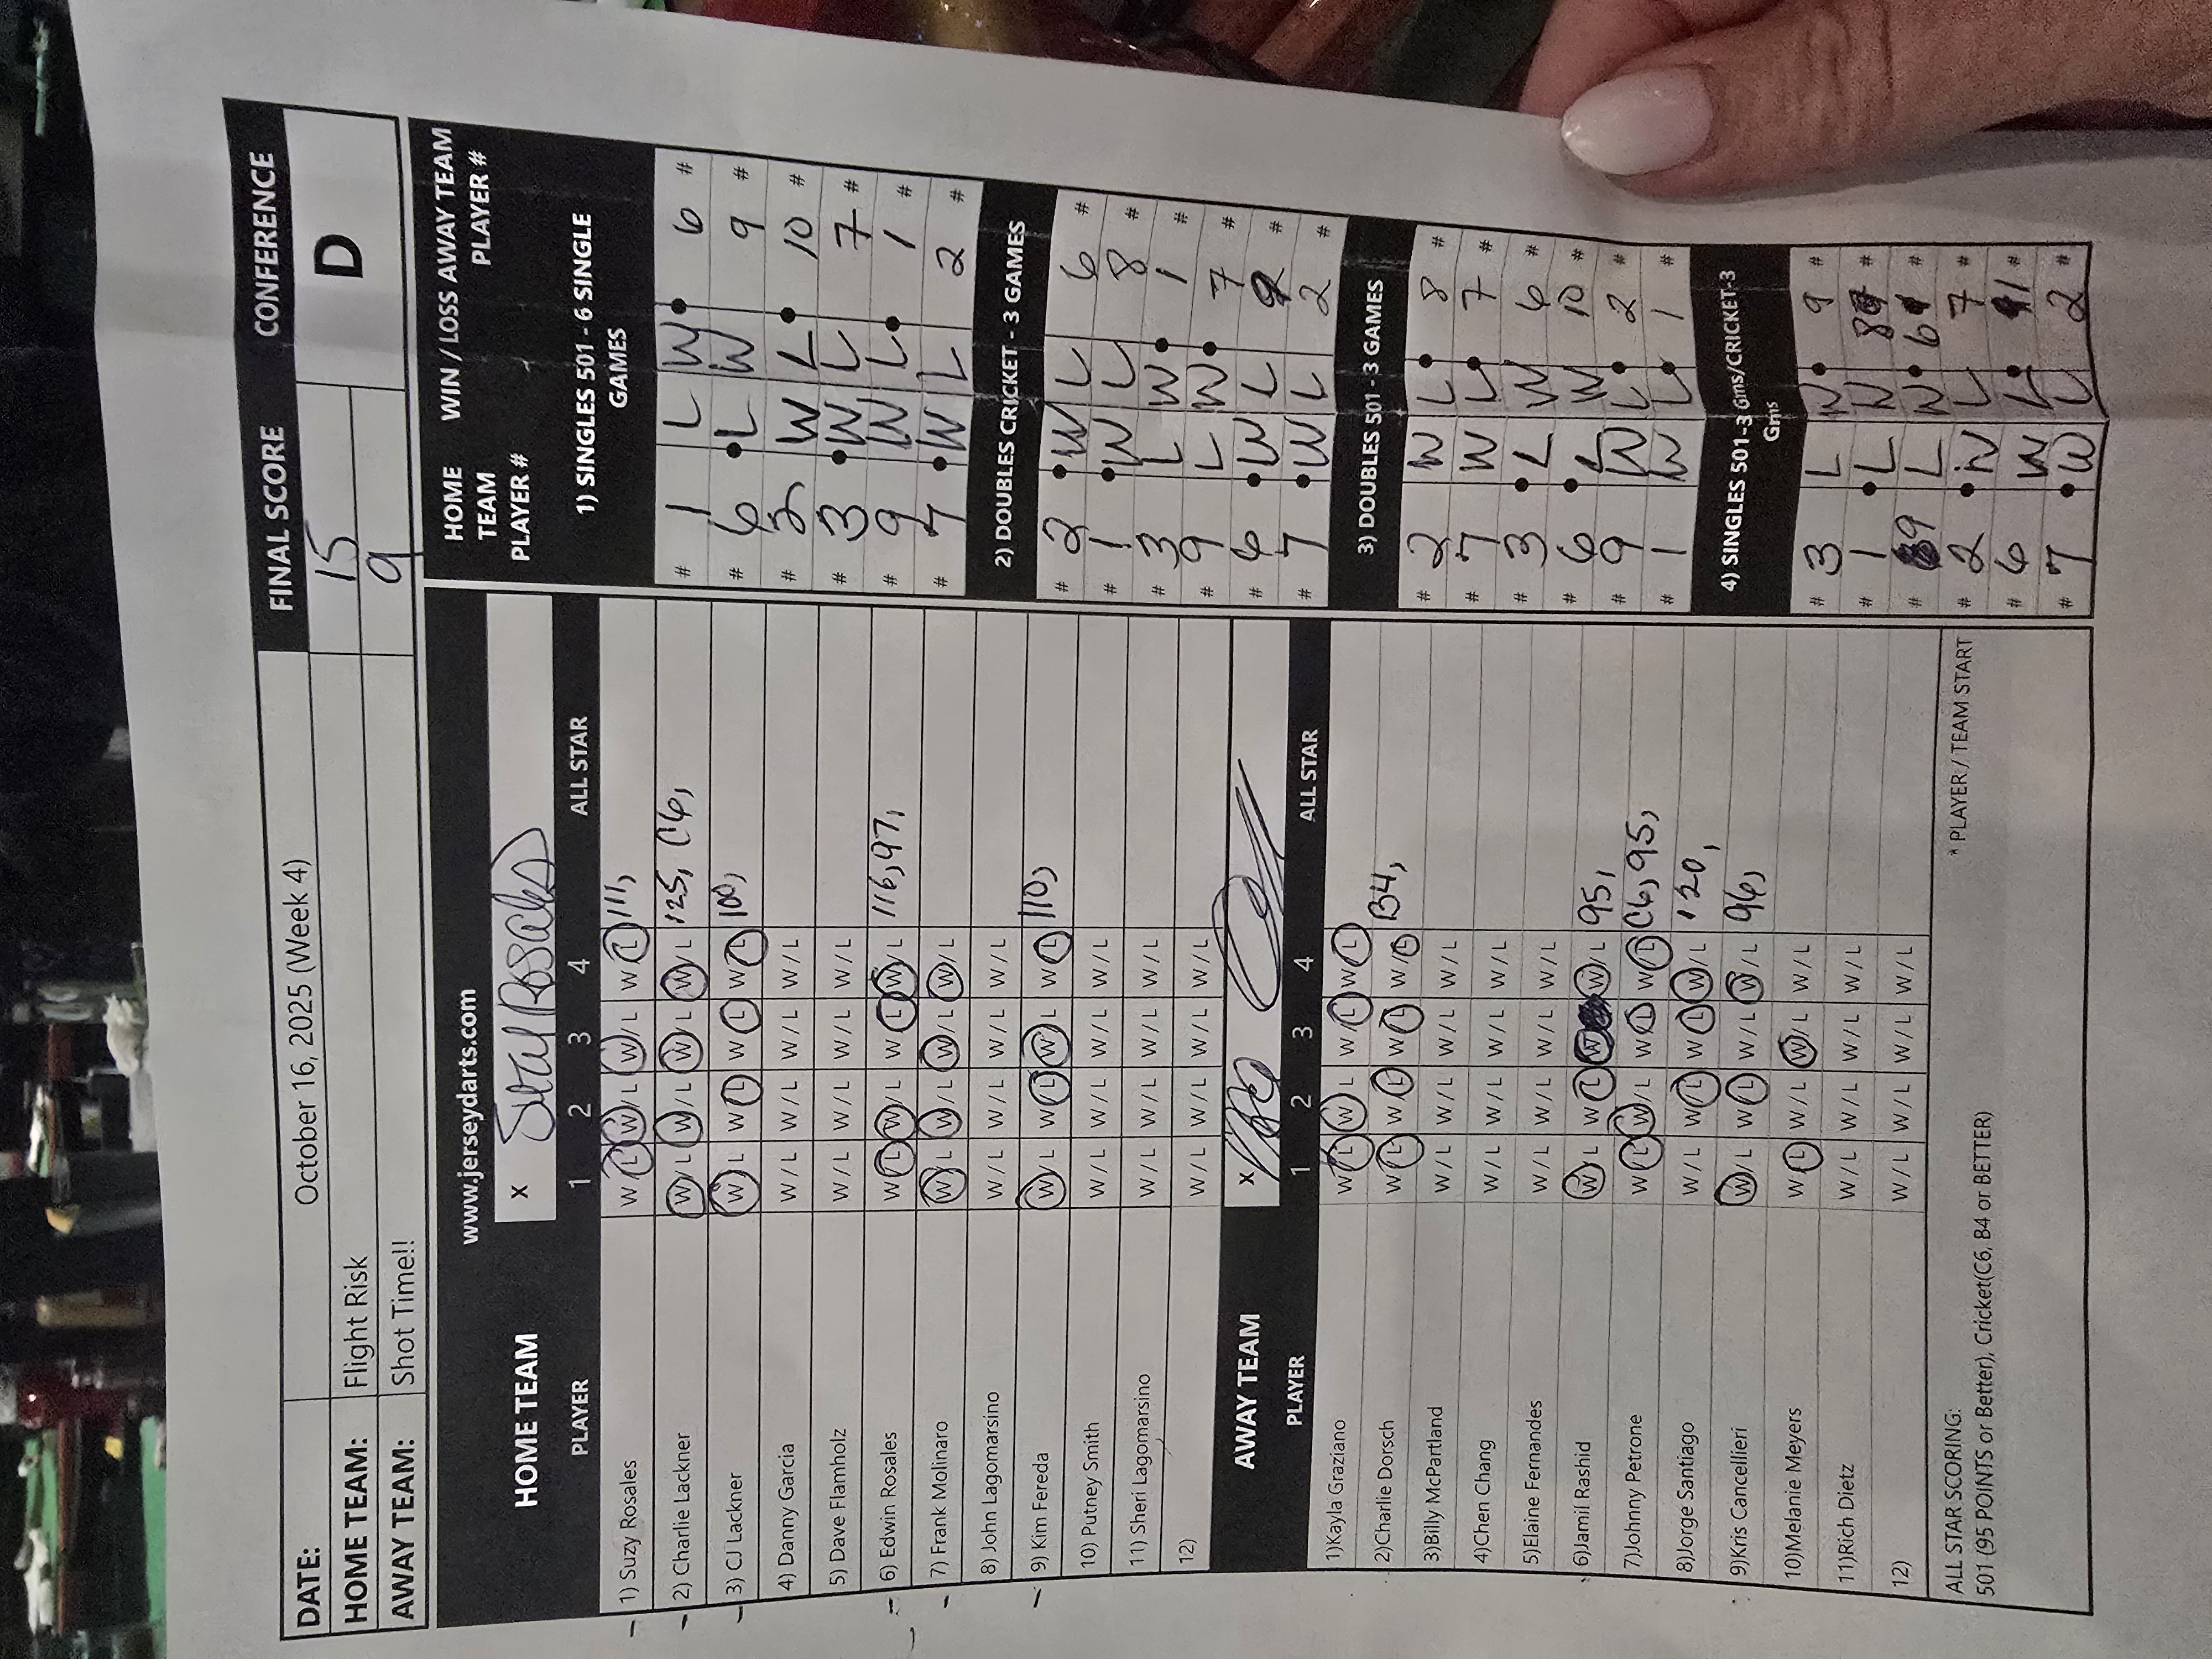 DATE: October 16, 2025 (Week 4) FINAL SCORE CONFERENCE
HOME TEAM: Flight Risk 15 D
AWAY TEAM: Shot Time!! 9
www.jerseydarts.com
HOME TEAM x
PLAYER 1 2 3 4 ALL STAR
1) Suzy Rosales W / L W / L W / L W / L 111,
2) Charlie Lackner W / L W / L W / L W / L 125, C6,
3) CJ Lackner W / L W / L W / L W / L 100,
4) Danny Garcia W / L W / L W / L W / L
5) Dave Flamholz W / L W / L W / L W / L
6) Edwin Rosales W / L W / L W / L W / L 116, 97,
7) Frank Molinaro W / L W / L W / L W / L
8) John Lagomarsino W / L W / L W / L W / L
9) Kim Fereda W / L W / L W / L W / L 110,
10) Putney Smith W / L W / L W / L W / L
11) Sheri Lagomarsino W / L W / L W / L W / L
12) W / L W / L W / L W / L
AWAY TEAM x
PLAYER 1 2 3 4 ALL STAR
1)Kayla Graziano W / L W / L W / L W / L
2)Charlie Dorsch W / L W / L W / L W / L B4,
3)Billy McPartland W / L W / L W / L W / L
4)Chen Chang W / L W / L W / L W / L
5)Elaine Fernandes W / L W / L W / L W / L
6)Jamil Rashid W / L W / L W / L 95,
7)Johnny Petrone W / L W / L W / L W / L C6, 95,
8)Jorge Santiago W / L W / L W / L W / L 120,
9)Kris Cancellieri W / L W / L W / L W / L 96,
10)Melanie Meyers W / L W / L W / L W / L
11)Rich Dietz W / L W / L W / L W / L
12) W / L W / L W / L W / L
ALL STAR SCORING: * PLAYER / TEAM START
501 (95 POINTS or Better), Cricket(C6, B4 or BETTER)
HOME TEAM PLAYER # WIN / LOSS AWAY TEAM PLAYER #
1) SINGLES 501 - 6 SINGLE GAMES
# 1 L W 6 #
# 6 L W 9 #
# 2 W L 10 #
# 3 W L 7 #
# 9 W L 1 #
# 7 W L 2 #
2) DOUBLES CRICKET - 3 GAMES
# 2 W L 6 #
# 1 W L 8 #
# 3 L W 1 #
# 9 L W 7 #
# 6 W L 9 #
# 7 W L 2 #
3) DOUBLES 501 - 3 GAMES
# 2 W L 8 #
# 7 W L 7 #
# 3 L W 6 #
# 6 L W 10 #
# 9 W L 2 #
# 1 W L 1 #
4) SINGLES 501-3 Gms/CRICKET-3 Gms
# 3 L W 9 #
# 1 L W 8 #
# 9 L W 6 #
# 2 W L 7 #
# 6 W L 1 #
# 7 W L 2 #